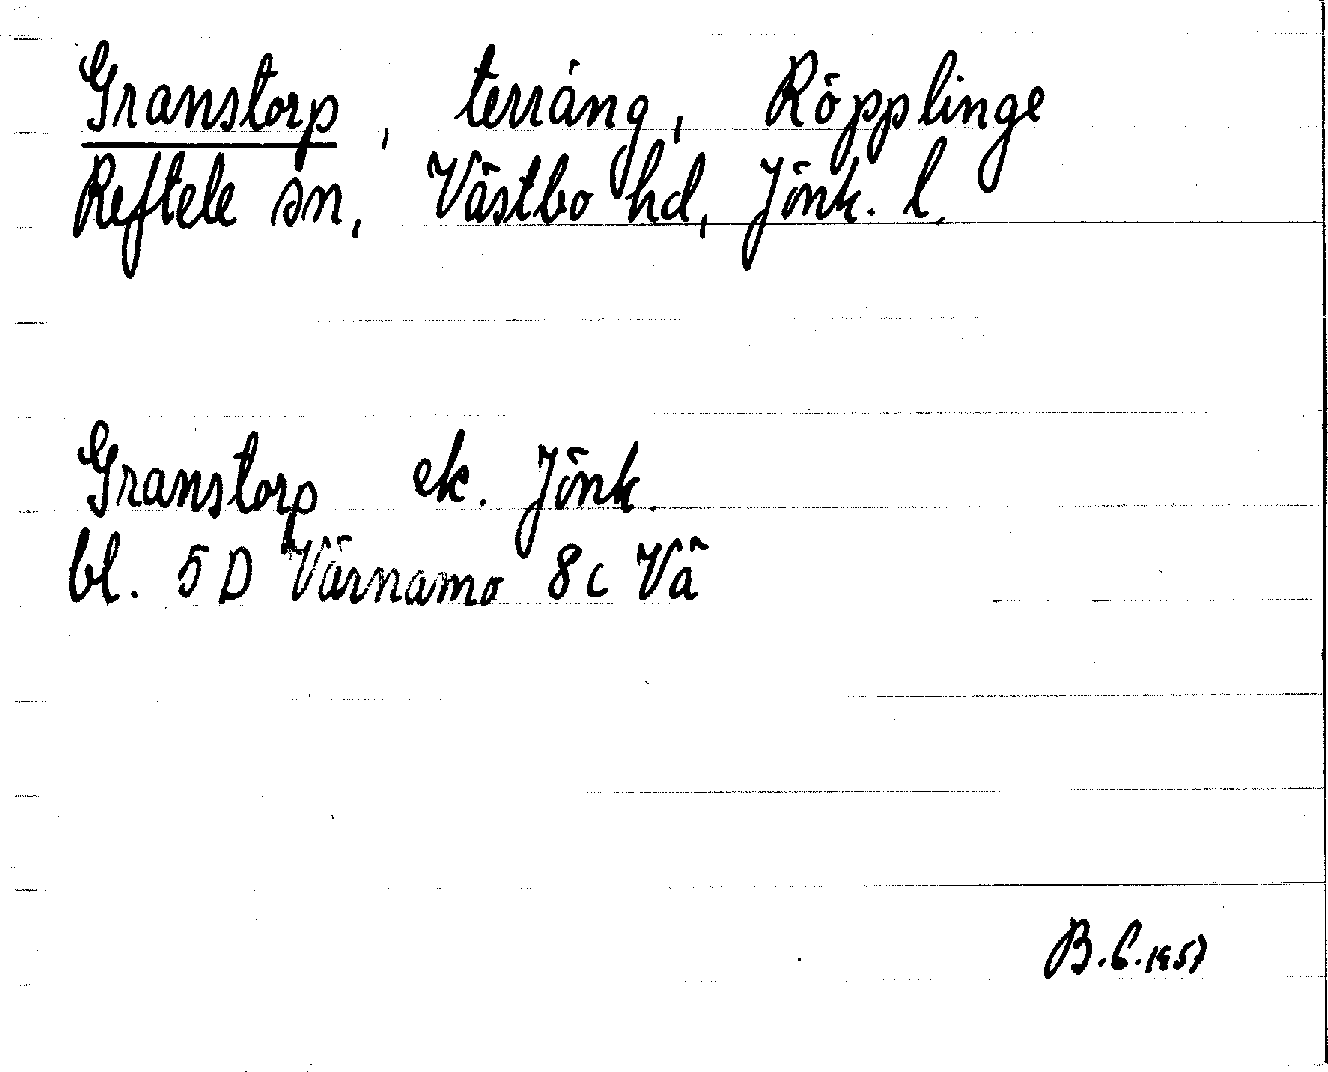 Granstorp, terräng, Röpplinge
Reftele sn, Västbo hd, Jönk. l.
Granstorp ek. Jönk.
bl. 5 D Värnamo 8 c Vä
B.C. 1957